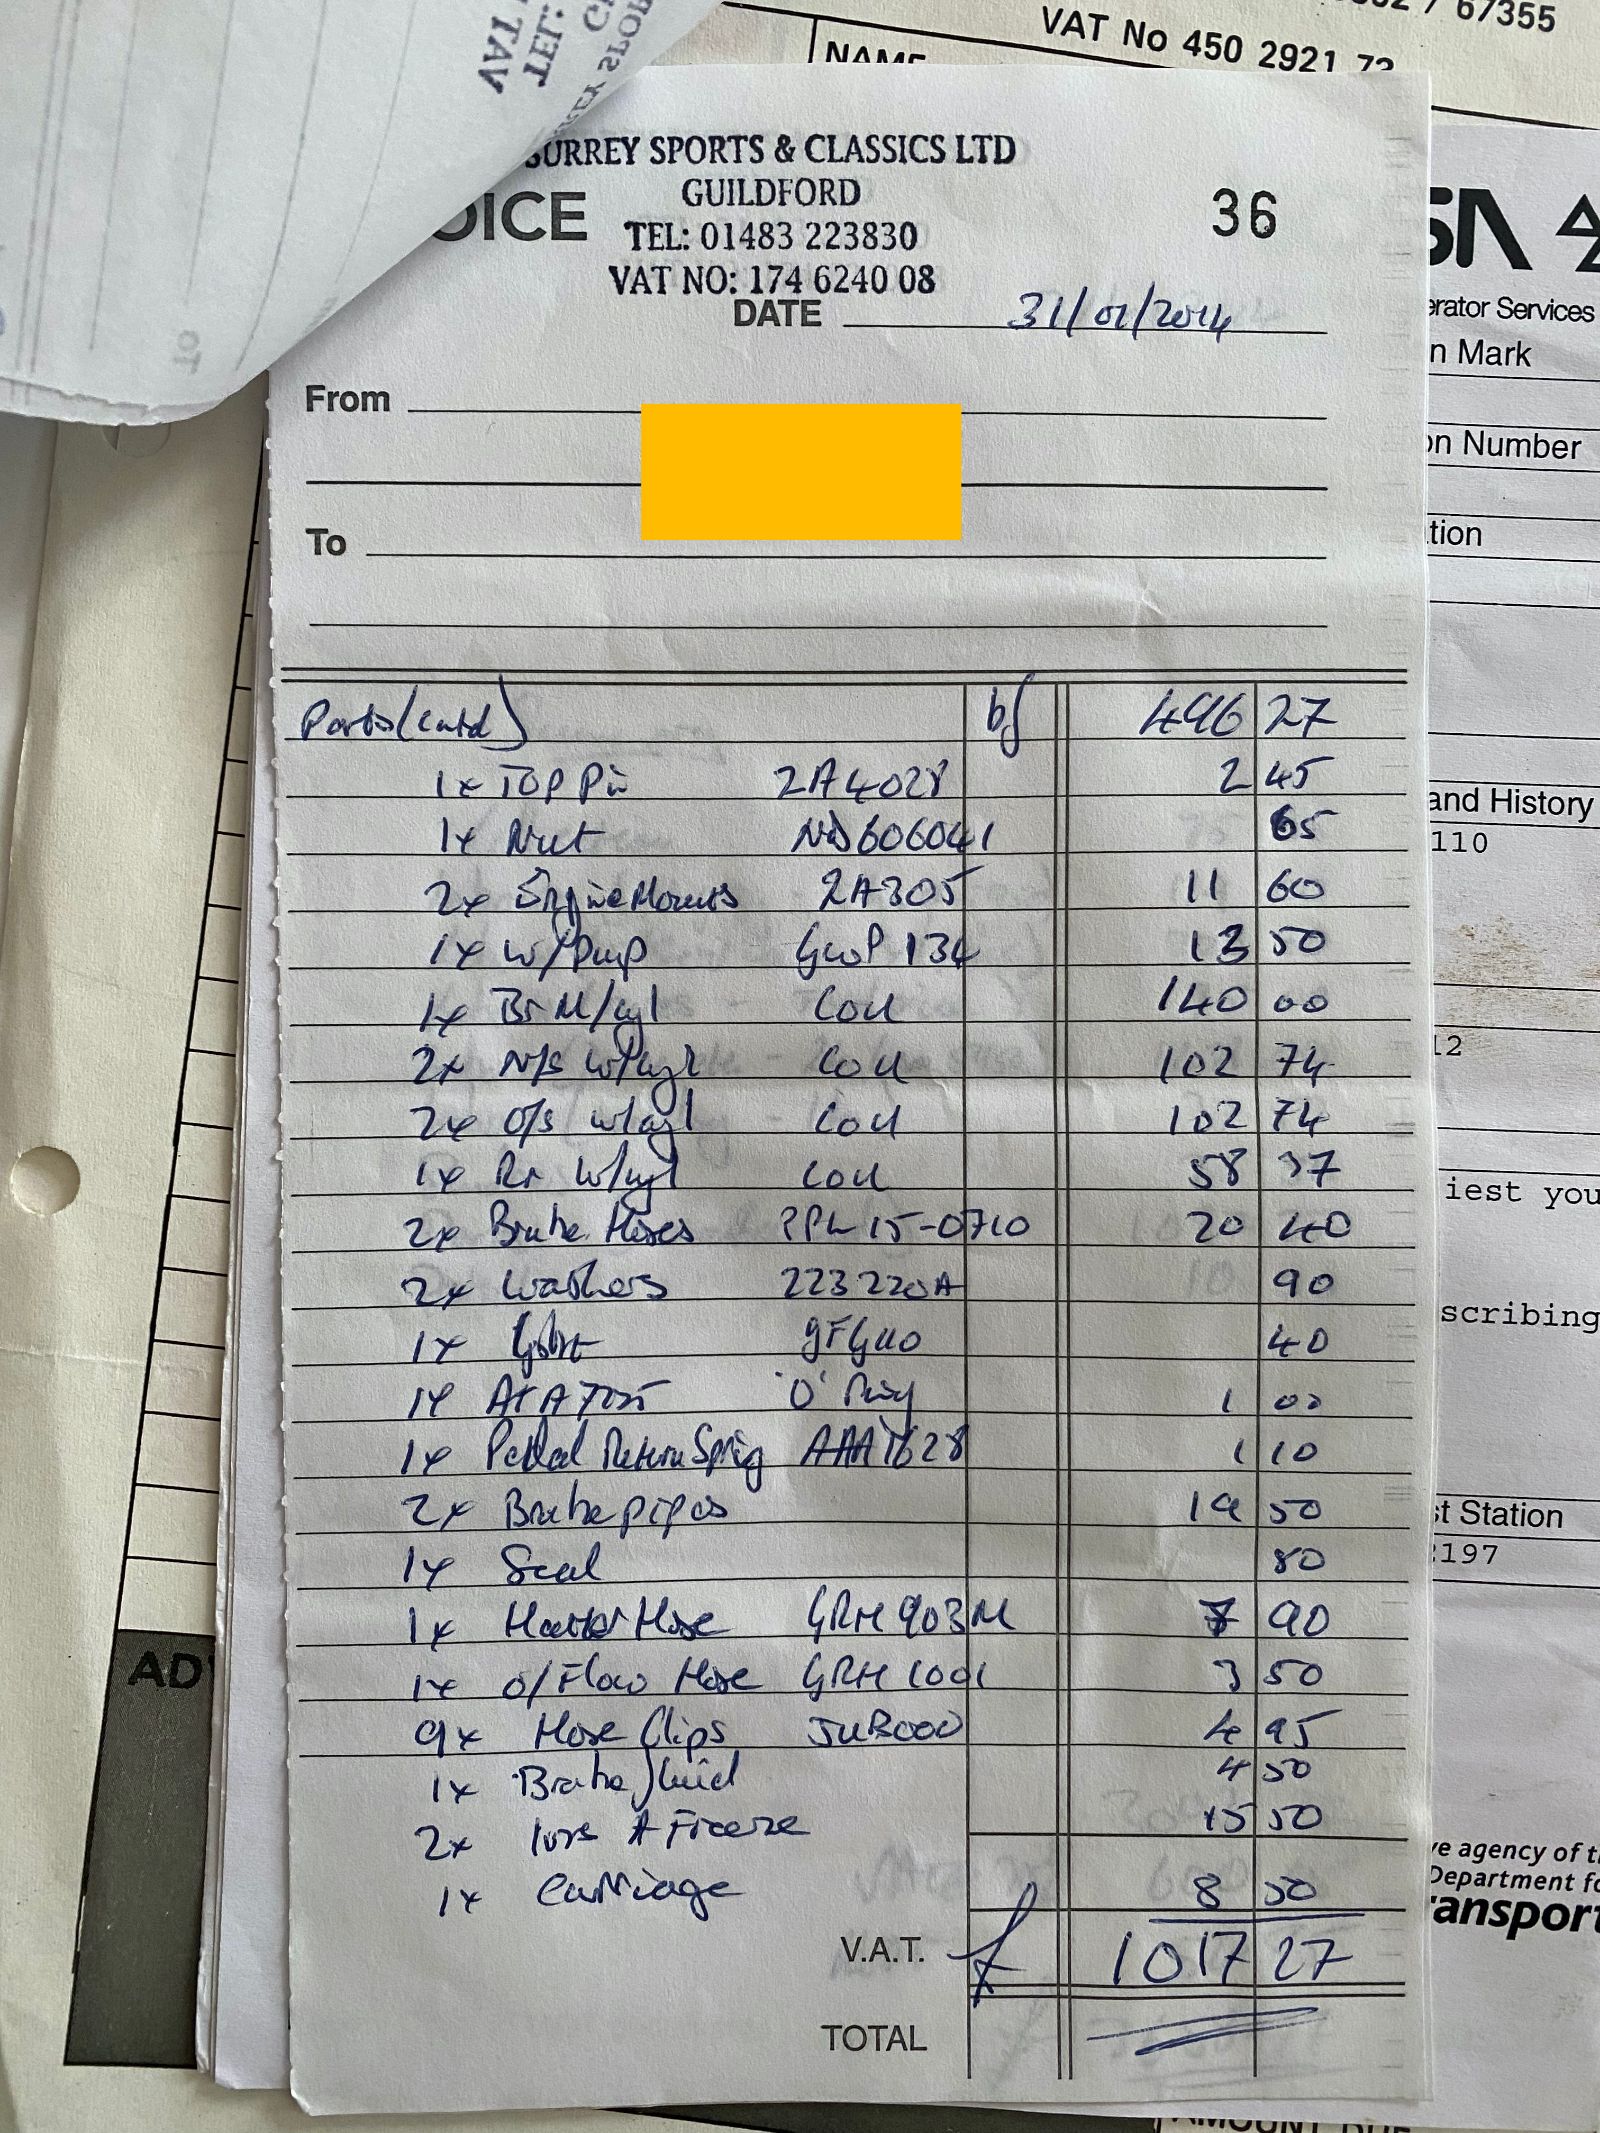 67355
VAT No 450 2921 72
NAME
SURREY SPORTS & CLASSICS LTD
GUILDFORD
OICE
36
TEL: 01483 223830
VAT NO: 174 6240 08
DATE 31/01/2014
From
To
Parts (contd) bf 496 27
1x Top Pin 2A4028 2 45
1x Nut 65
2x Engine Mounts 2A305 11 60
1x W/Pump GWP 134 13 50
1x Br M/cyl 140 00
2x N/S W/cyl 102 74
2x O/S W/cyl 102 74
1x Rr W/cyl 58 37
2x Brake Hoses 15-0710 20 40
2x Washers 223220A 90
1x 40
1x 'O' Ring 1 00
1x Pedal Return Spring AAA1628 1 10
2x Brake pipes 19 50
1x Seal 80
1x Heater Hose GRH 903M 7 90
1x O/Flow Hose GRH 1001 3 50
9x Hose Clips JUB000 4 95
1x Brake fluid 4 50
2x A Freeze 15 50
1x Carriage 8 50
V.A.T. £ 1017 27
TOTAL
erator Services
n Mark
on Number
tion
and History
110
12
iest you
scribing
st Station
2197
ve agency of
Department fo
ansport
AD
AMOUNT DUE